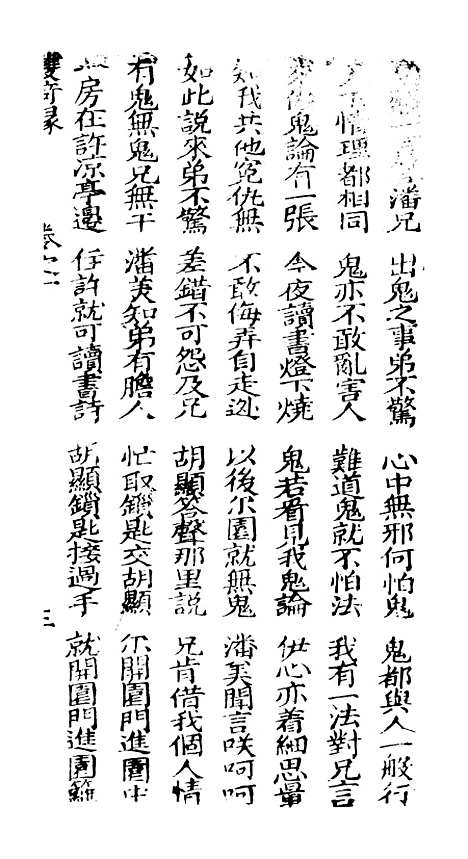 潘兄 出鬼之事弟不驚 心中無邪何怕鬼 鬼都與人一般行
情理都相同 鬼亦不敢亂害人 難道鬼就不怕法 我有一法對兄言
鬼論有一張 今夜讀書燈下燒 鬼若看見我鬼論 伊心亦着細思量
我共他冤仇無 不敢侮弄自走迯 以後尔園就無鬼 潘美聞言咲呵呵
如此説來弟不驚 差錯不可怨及兄 胡顯答聲那里説 兄肯借我個人情
有鬼無鬼兄無干 潘美知弟有膽人 忙取鎖匙交胡顯 尔開園門進園中
房在許凉亭邊 任許就可讀書詩 胡顯鎖匙接過手 就開園門進園籬
雙奇緣 卷之二 三